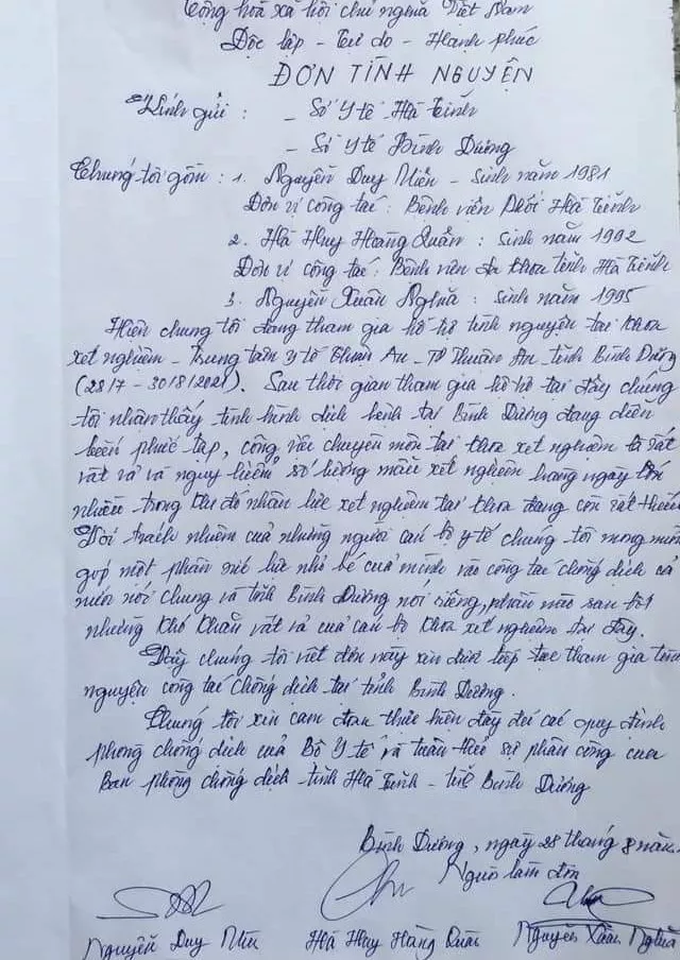 Cộng hoà xã hội chủ nghĩa Việt Nam
Độc lập - Tự do - Hạnh phúc
ĐƠN TÌNH NGUYỆN
Kính gửi : - Sở Y tế Hà Tĩnh
- Sở Y tế Bình Dương
Chúng tôi gồm : 1. Nguyễn Duy - Sinh năm 1981
Đơn vị công tác : Bệnh viện Phổi Hà Tĩnh
2. Hà Huy Hoàng Quân : sinh năm 1992
Đơn vị công tác : Bệnh viện đa khoa tỉnh Hà Tĩnh
3. Nguyễn Xuân Nghĩa : sinh năm 1995
Hiện chúng tôi đang tham gia hỗ trợ tình nguyện tại khoa
xét nghiệm - Trung tâm y tế Thuận An - TP Thuận An - tỉnh Bình Dương
(28/7 - 30/8/2021). Sau thời gian tham gia hỗ trợ tại đây chúng
tôi nhận thấy tình hình dịch bệnh tại Bình Dương đang diễn
biến phức tạp, công việc chuyên môn tại khoa xét nghiệm là rất
vất vả và nguy hiểm, số lượng mẫu xét nghiệm hàng ngày lớn
nhiều trong khi đó nhân lực xét nghiệm tại khoa đang còn rất thiếu
Với trách nhiệm của những người cán bộ y tế chúng tôi mong muốn
góp một phần sức lực nhỏ bé của mình vào công tác chống dịch cả
nước nói chung và tỉnh Bình Dương nói riêng, phần nào san bớt
những khó khăn vất vả của cán bộ khoa xét nghiệm tại đây.
Vậy chúng tôi viết đơn này xin được tiếp tục tham gia tình
nguyện công tác chống dịch tại tỉnh Bình Dương.
Chúng tôi xin cam đoan thực hiện đầy đủ các quy định
phòng chống dịch của Bộ Y tế và tuân thủ sự phân công của
Ban phòng chống dịch tỉnh Hà Tĩnh - tỉnh Bình Dương
Bình Dương, ngày 28 tháng 8 năm
Người làm đơn
Nguyễn Duy Hà Huy Hoàng Quân Nguyễn Xuân Nghĩa